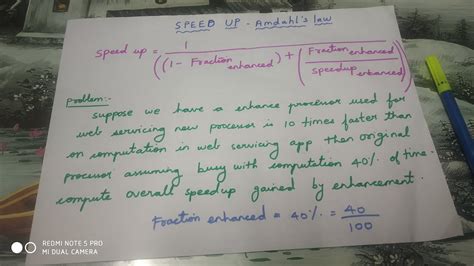 SPEED UP - Amdahl's law
Speed up = 1
((1 - Fraction enhanced) + (Fraction enhanced / speedup enhanced))
Problem:-
Suppose we have a enhance processor used for
web servicing new processor is 10 times faster than
on computation in web servicing app then original
processor assuming busy with computation 40% of time.
compute overall speedup gained by enhancement.
Fraction enhanced = 40% = 40/100
REDMI NOTE 5 PRO
MI DUAL CAMERA